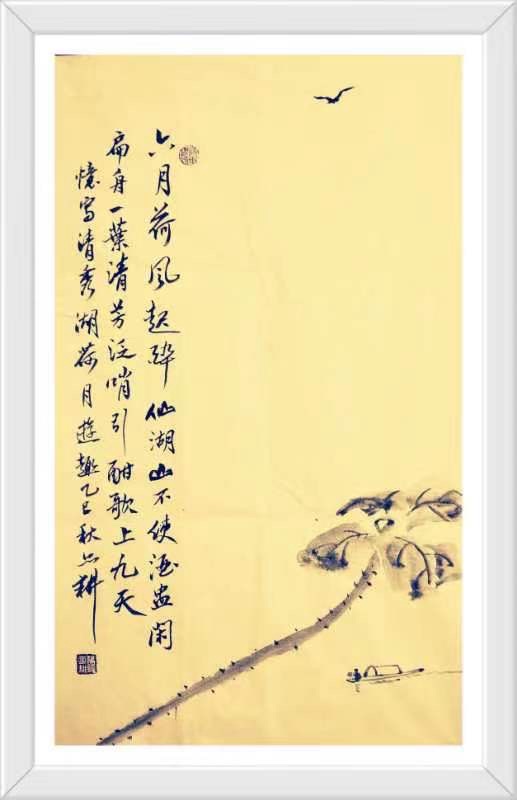 六月荷风起醉仙湖山不使酒盅闲
扁舟一叶清芳泛哨引酣歌上九天
忆写清秀湖荷月游趣乙巳秋 耕